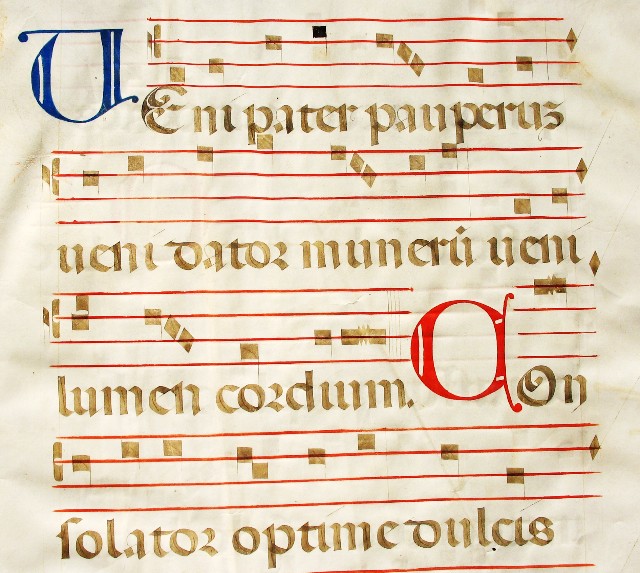 VEni pater pauperuz
ueni dator munerū ueni
lumen cordium. COn
solator optime dulcis